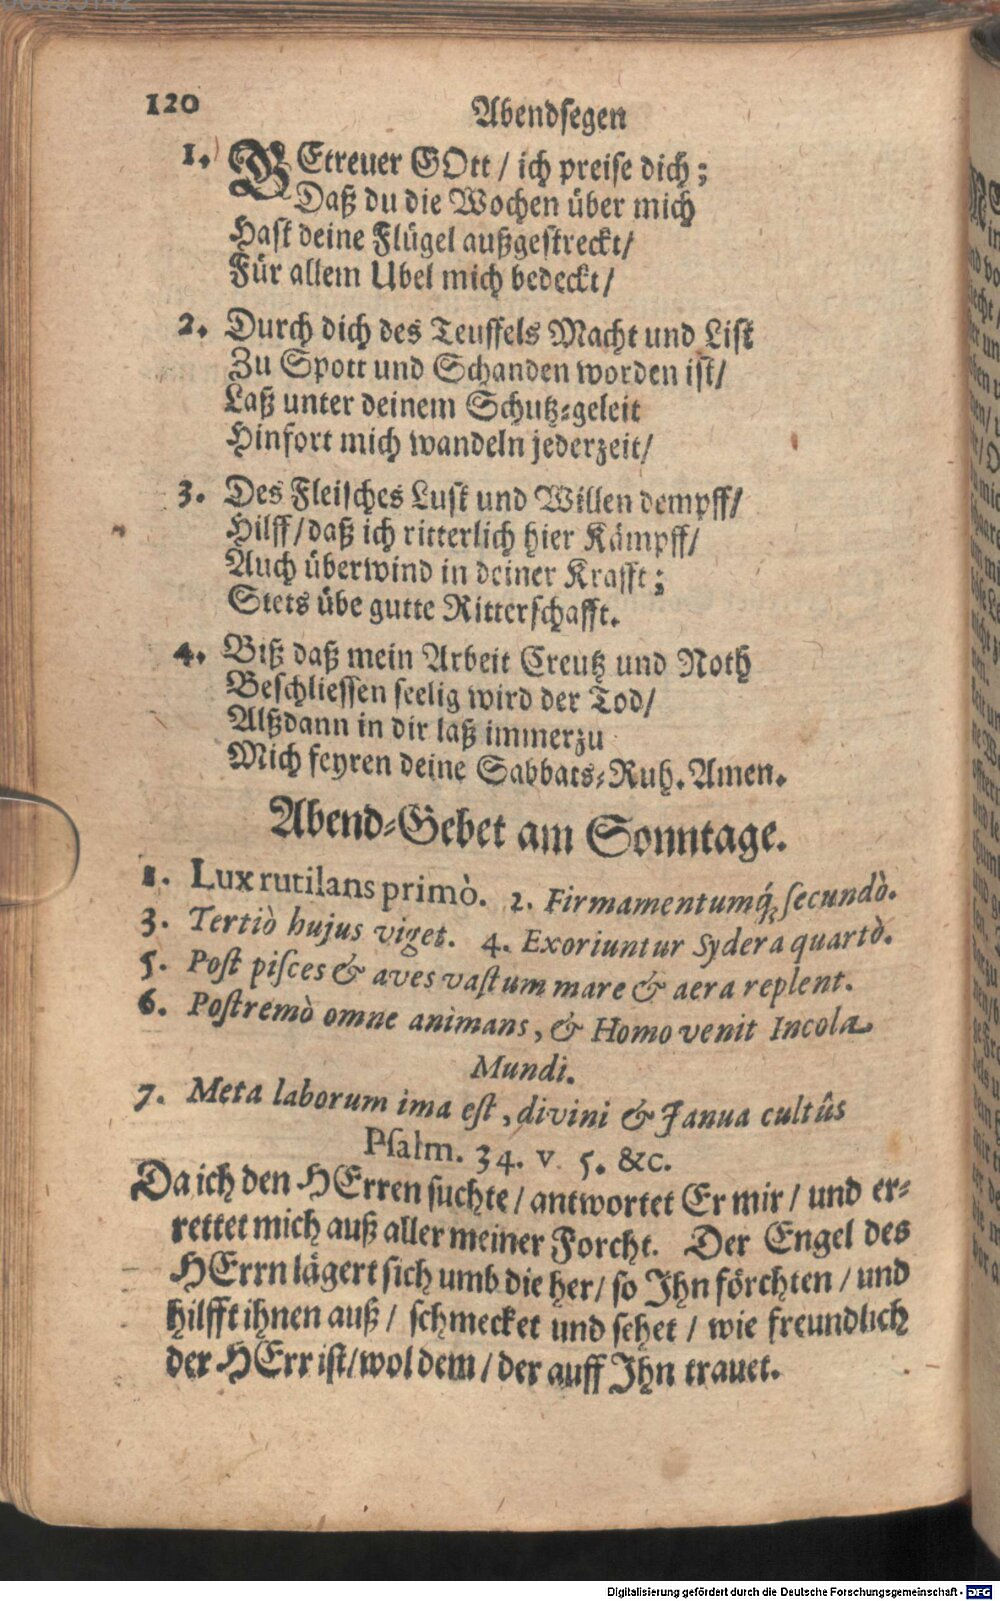 120
Abendsegen
1. GEtreuer GOtt / ich preise dich;
Daß du die Wochen über mich
Hast deine Flügel außgestreckt/
Für allem Ubel mich bedeckt/
2. Durch dich des Teuffels Macht und List
Zu Spott und Schanden worden ist/
Laß unter deinem Schutz-geleit
Hinfort mich wandeln jederzeit/
3. Des Fleisches Lust und Willen dempff/
Hilff/daß ich ritterlich hier Kämpff/
Auch überwind in deiner Krafft;
Stets übe gutte Ritterschafft.
4. Biß daß mein Arbeit Creutz und Noth
Beschliessen seelig wird der Tod/
Alßdann in dir laß immerzu
Mich feyren deine Sabbats-Ruh. Amen.
Abend-Gebet am Sonntage.
1. Lux rutilans primò. 2. Firmamentumq́; secundò.
3. Tertiò hujus viget. 4. Exoriuntur Sydera quartò.
5. Post pisces & aves vastum mare & aera replent.
6. Postremò omne animans, & Homo venit Incola
Mundi.
7. Meta laborum ima est, divini & Janua cultûs
Psalm. 34. v. 5. &c.
Da ich den HErren suchte / antwortet Er mir / und er-
rettet mich auß aller meiner Forcht. Der Engel des
HErrn lägert sich umb die her/ so Ihn förchten / und
hilfft ihnen auß / schmecket und sehet / wie freundlich
der HErr ist/wol dem / der auff Ihn trauet.
Digitalisierung gefördert durch die Deutsche Forschungsgemeinschaft - DFG